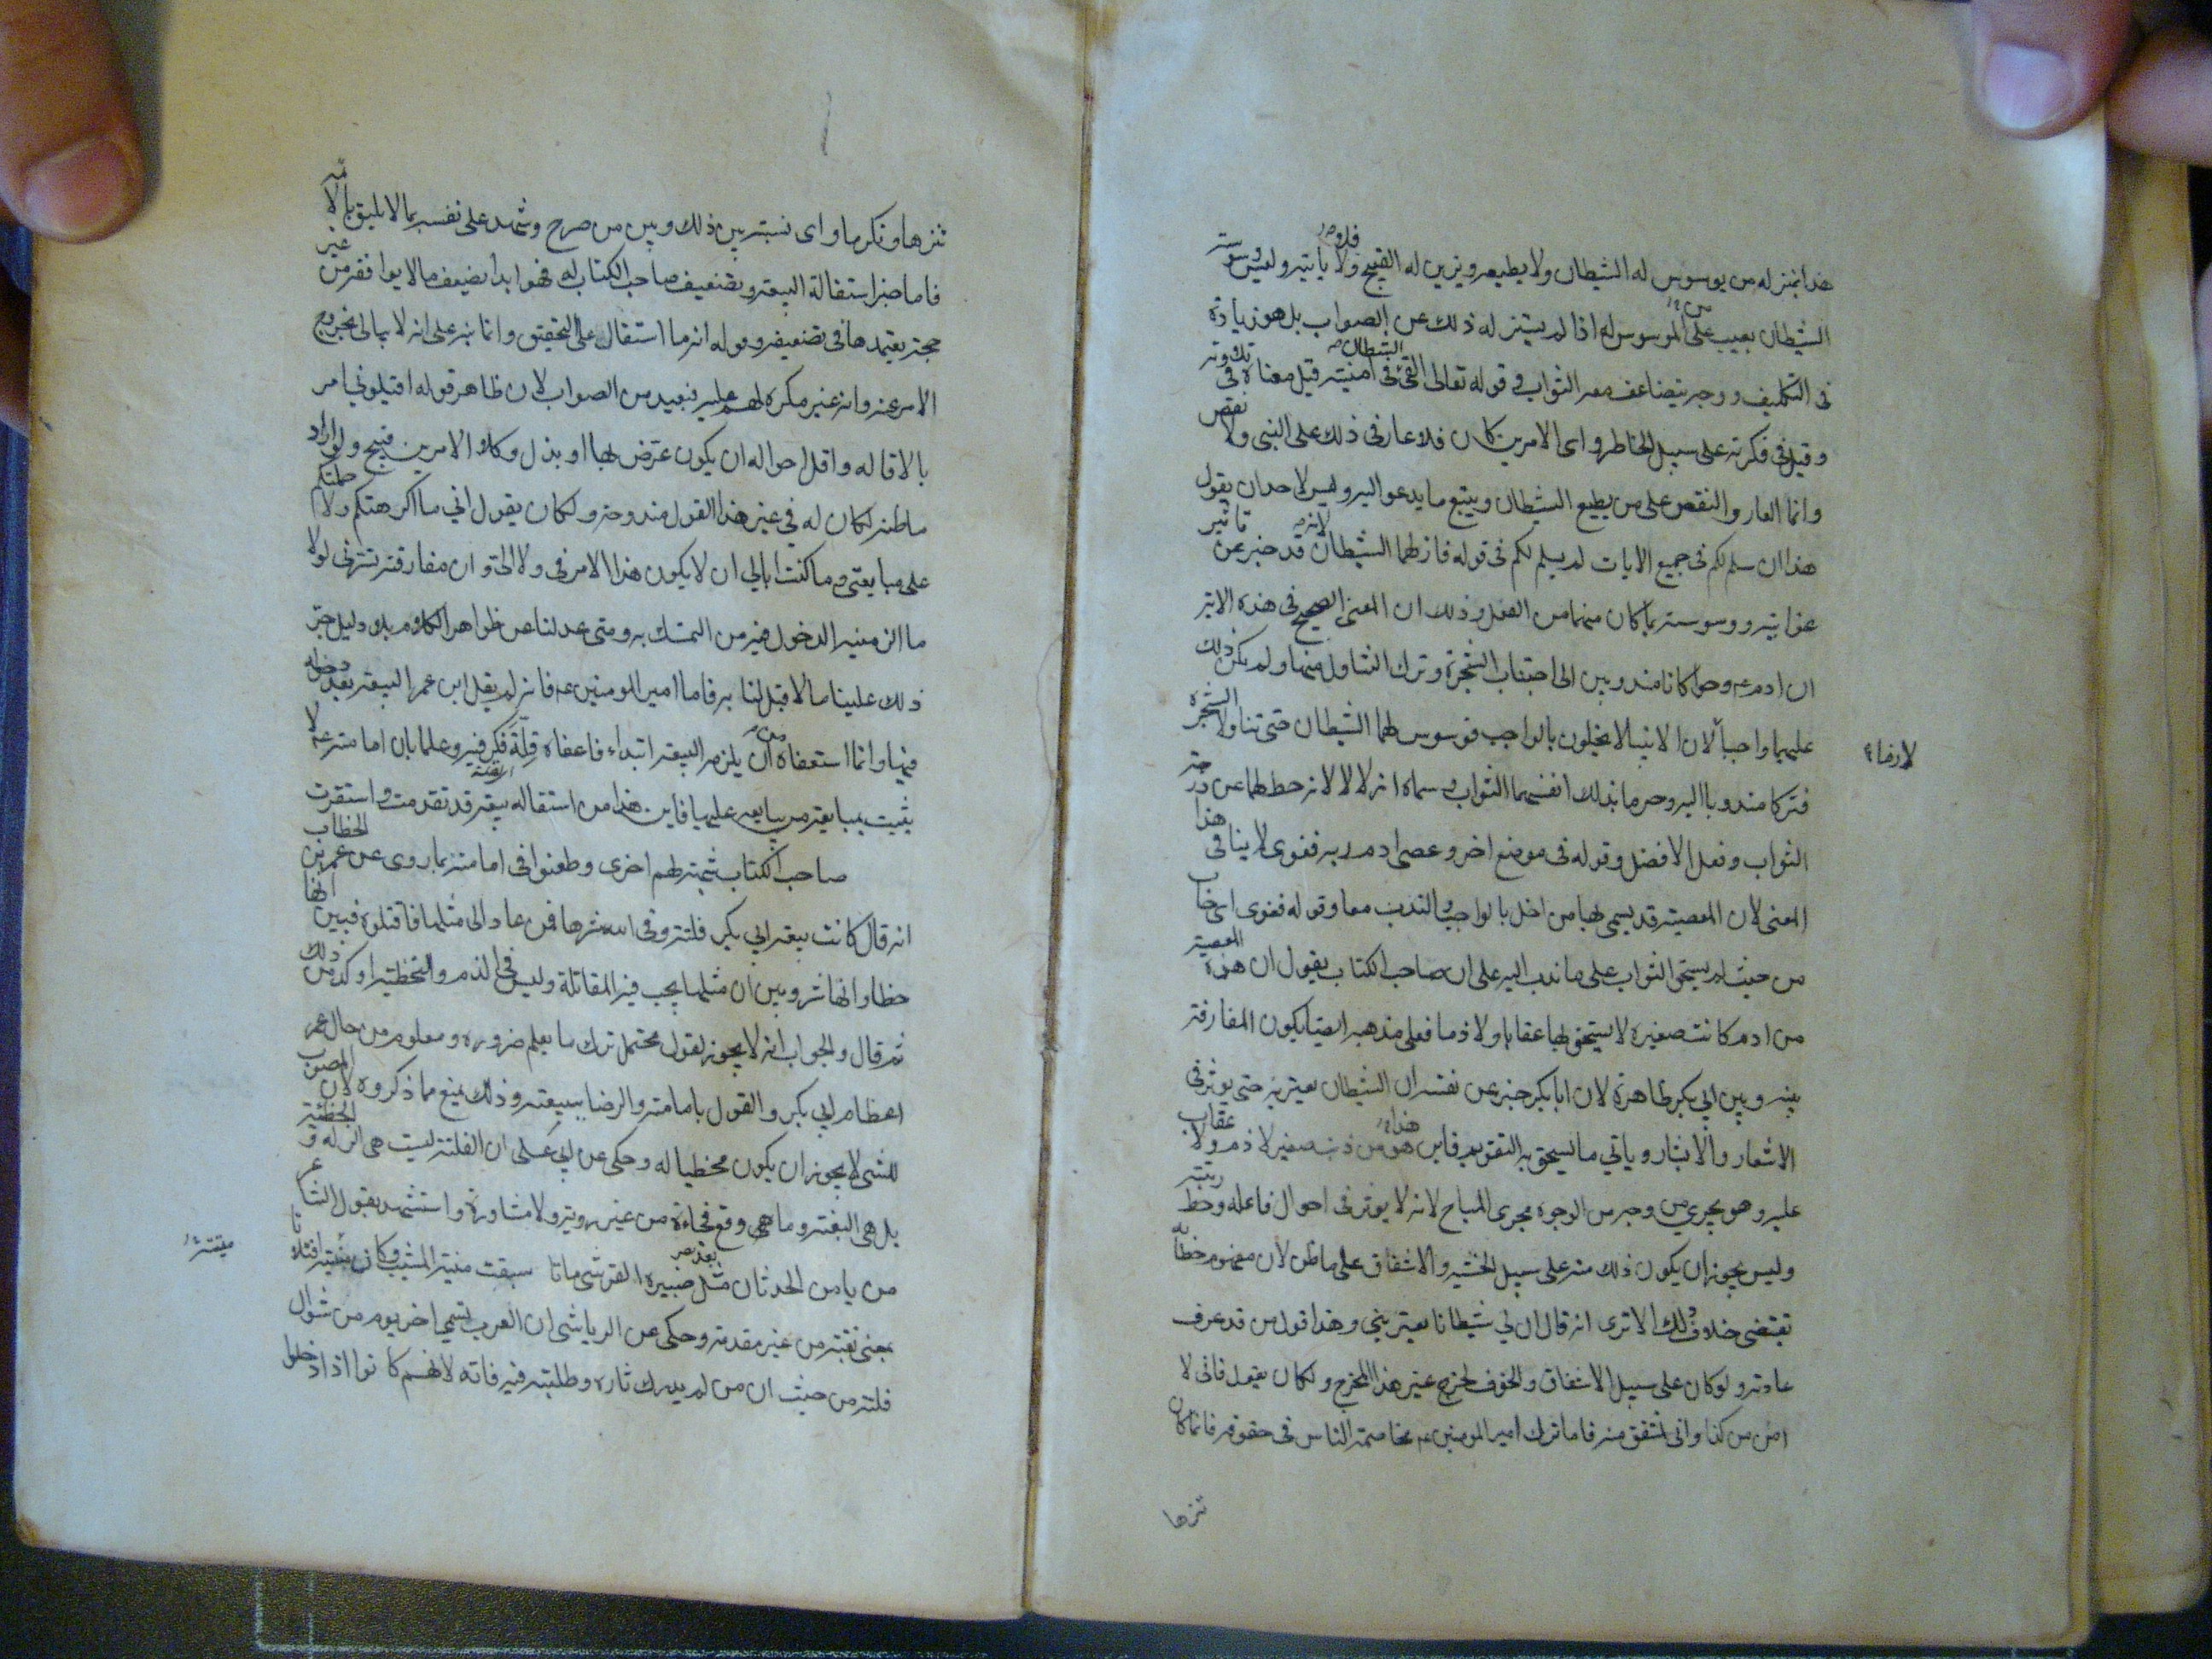 هذا بمنزله من يوسوس له الشيطان ولا يطيعه ويزين له القبيح فلا ياتيه وليس وسوسته
الشيطان بعيب على الموسوس له اذا لم يستزله ذلك عن الصواب بل هو زيادة
فى التكليف ووجه يتضاعف معه الثواب وقوله تعالى القى الشيطان فى امنيته قيل معناه فى تلاوته
وقيل فى فكرته على سبيل الخاطر واى الامرين كان فلا عار فى ذلك على النبى ولا نقص
وانما العار والنقص على من يطيع الشيطان ويتبع ما يدعو اليه وليس لاحد ان يقول
هذا ان سلم لكم فى جميع الايات لم يسلم لكم فى قوله فازلهما الشيطان لانه قد خبر عن تاثير
غوايته ووسوسته بما كان منهما من الفعل وذلك ان المعنى الصحيح فى هذه الاية
ان ادم عه وحوا كانا مندوبين الى اجتناب الشجرة وترك التناول منها ولم يكن ذلك
عليهما واجبا لان الانبيا لا يخلون بالواجب فوسوس لهما الشيطان حتى تناولا الشجرة
فتركا مندوبا اليه وحرما بذلك انفسهما الثواب وسماه ازلالا لانه حط لهما عن درجة
الثواب وفعل الافضل وقوله فى موضع اخر وعصى ادم ربه فغوى لا ينافى هذا
المعنى لان المعصيه قد يسمى بها من اخل بالواجب والندب معا وقوله فغوى اى خاب
من حيث لم يستحق الثواب على ما ندب اليه على ان صاحب الكتاب يقول ان هذه المعصية
من ادم كانت صغيره لا يستحق بها عقابا ولا ذما فعلى مذهبه ايضا يكون المفارقة
بينه وبين ابي بكر ظاهرة لان ابا بكر خبر عن نفسه ان الشيطان يعتريه حتى يوثر فى
الاشعار والابشار وياتي ما يستحق به التقويم فاين هذا من ذنب صغير لا ذم ولا عقاب
عليه وهو يجري من وجه من الوجوه مجرى المباح لانه لا يوثر فى احوال فاعله وحط رتبته
وليس يجوز ان يكون ذلك منه على سبيل الخشيه والاشفاق على ما ظن لان مفهوم خطابه
تقتضى خلاف ذلك الا ترى انه قال ان لي شيطانا يعتريني وهذا قول من قد عرف
عادته ولو كان على سبيل الاشفاق والخوف لخرج عن هذا المخرج ولكان يقول فانى لا
امن من كذا وانى لمشفق منه فاما ترك امير المومنين عه مخاصمة الناس فى حقوقه فانما كان
تنزها
تنزها وتكرما واى نسبة بين ذلك وبين من صرح وشهد على نفسه بما لا يليق بالائمه
فاما خبر استقالة البيعة وتضعيف صاحب الكتاب له فهو ابدا يضعف ما لا يوافقه من غير
حجة يعتمدها فى تضعيفه وقوله انه ما استقال على التحقيق وانما نبه على انه لا يبالى بخروج
الامر عنه وانه غير مكره لهم عليه فبعيد من الصواب لان ظاهر قوله اقيلوني امر
بالاقاله واقل احواله ان يكون عرض لها او بذل وكلا الامرين قبيح ولو اراد
ما ظنه لكان له في غير هذا القول مندوحة ولكان يقول اني ما اكرهتكم ولا حملتكم
على مبايعتى وما كنت ابالي ان لا يكون هذا الامر فى ولا الى وان مفارقته لتسرنى لولا
ما الزمنيه الدخول فيه من التمسك به ومتى عدلنا عن ظواهر الكلام بلا دليل جر
ذلك علينا ما لا قبل لنا به فاما امير المومنين عه فانه لم يقل ابن عمر البيعة بعد دخوله
فيها وانما استعفاه من ان يلزمه البيعة ابتداء فاعفاه قلة فكر فيه وعلما بان امامته عه لا
يثبت بمبايعة من يبايعه عليها فاين هذا من استقاله بيعة قد تقدمت واستقرت
صاحب الكتاب شبهة لهم اخرى وطعنوا فى امامته بما روى عن عمر بن الخطاب
انه قال كانت بيعة ابي بكر فلتة وقى الله شرها فمن عاد الى مثلها فاقتلوه فبين انها
خطا وانها شر وبين ان مثلها يجب فيه المقاتلة وليس فى الذم والتخطئه اوكد من ذلك
ثم قال والجواب انه لا يجوز لقول محتمل ترك ما يعلم ضروره ومعلوم من حال عمر
اعظام ابي بكر والقول بامامته والرضا ببيعته وذلك يمنع مما ذكروه لان المصوب
للشى لا يجوز ان يكون مخطيا له وحكى عن ابي على ان الفلتة ليست هى الزله والخطئية
بل هى البغتة وما هى وقع فجاءة من غير روية ولا مشاورة واستشهد بقول الشاعر
من يامن الحدثان مثل بعد صبيرة القرشى ماتا سبقت منيته المشيب وكان ميتته افتلاتا
يعنى بغتة من غير مقدمة وحكى عن الرياشى ان العرب تسمي اخر يوم من شوال
فلتة من حيث ان من لم يدرك ثاره وطلبته فيه فاته لانهم كانوا اذا دخلوا